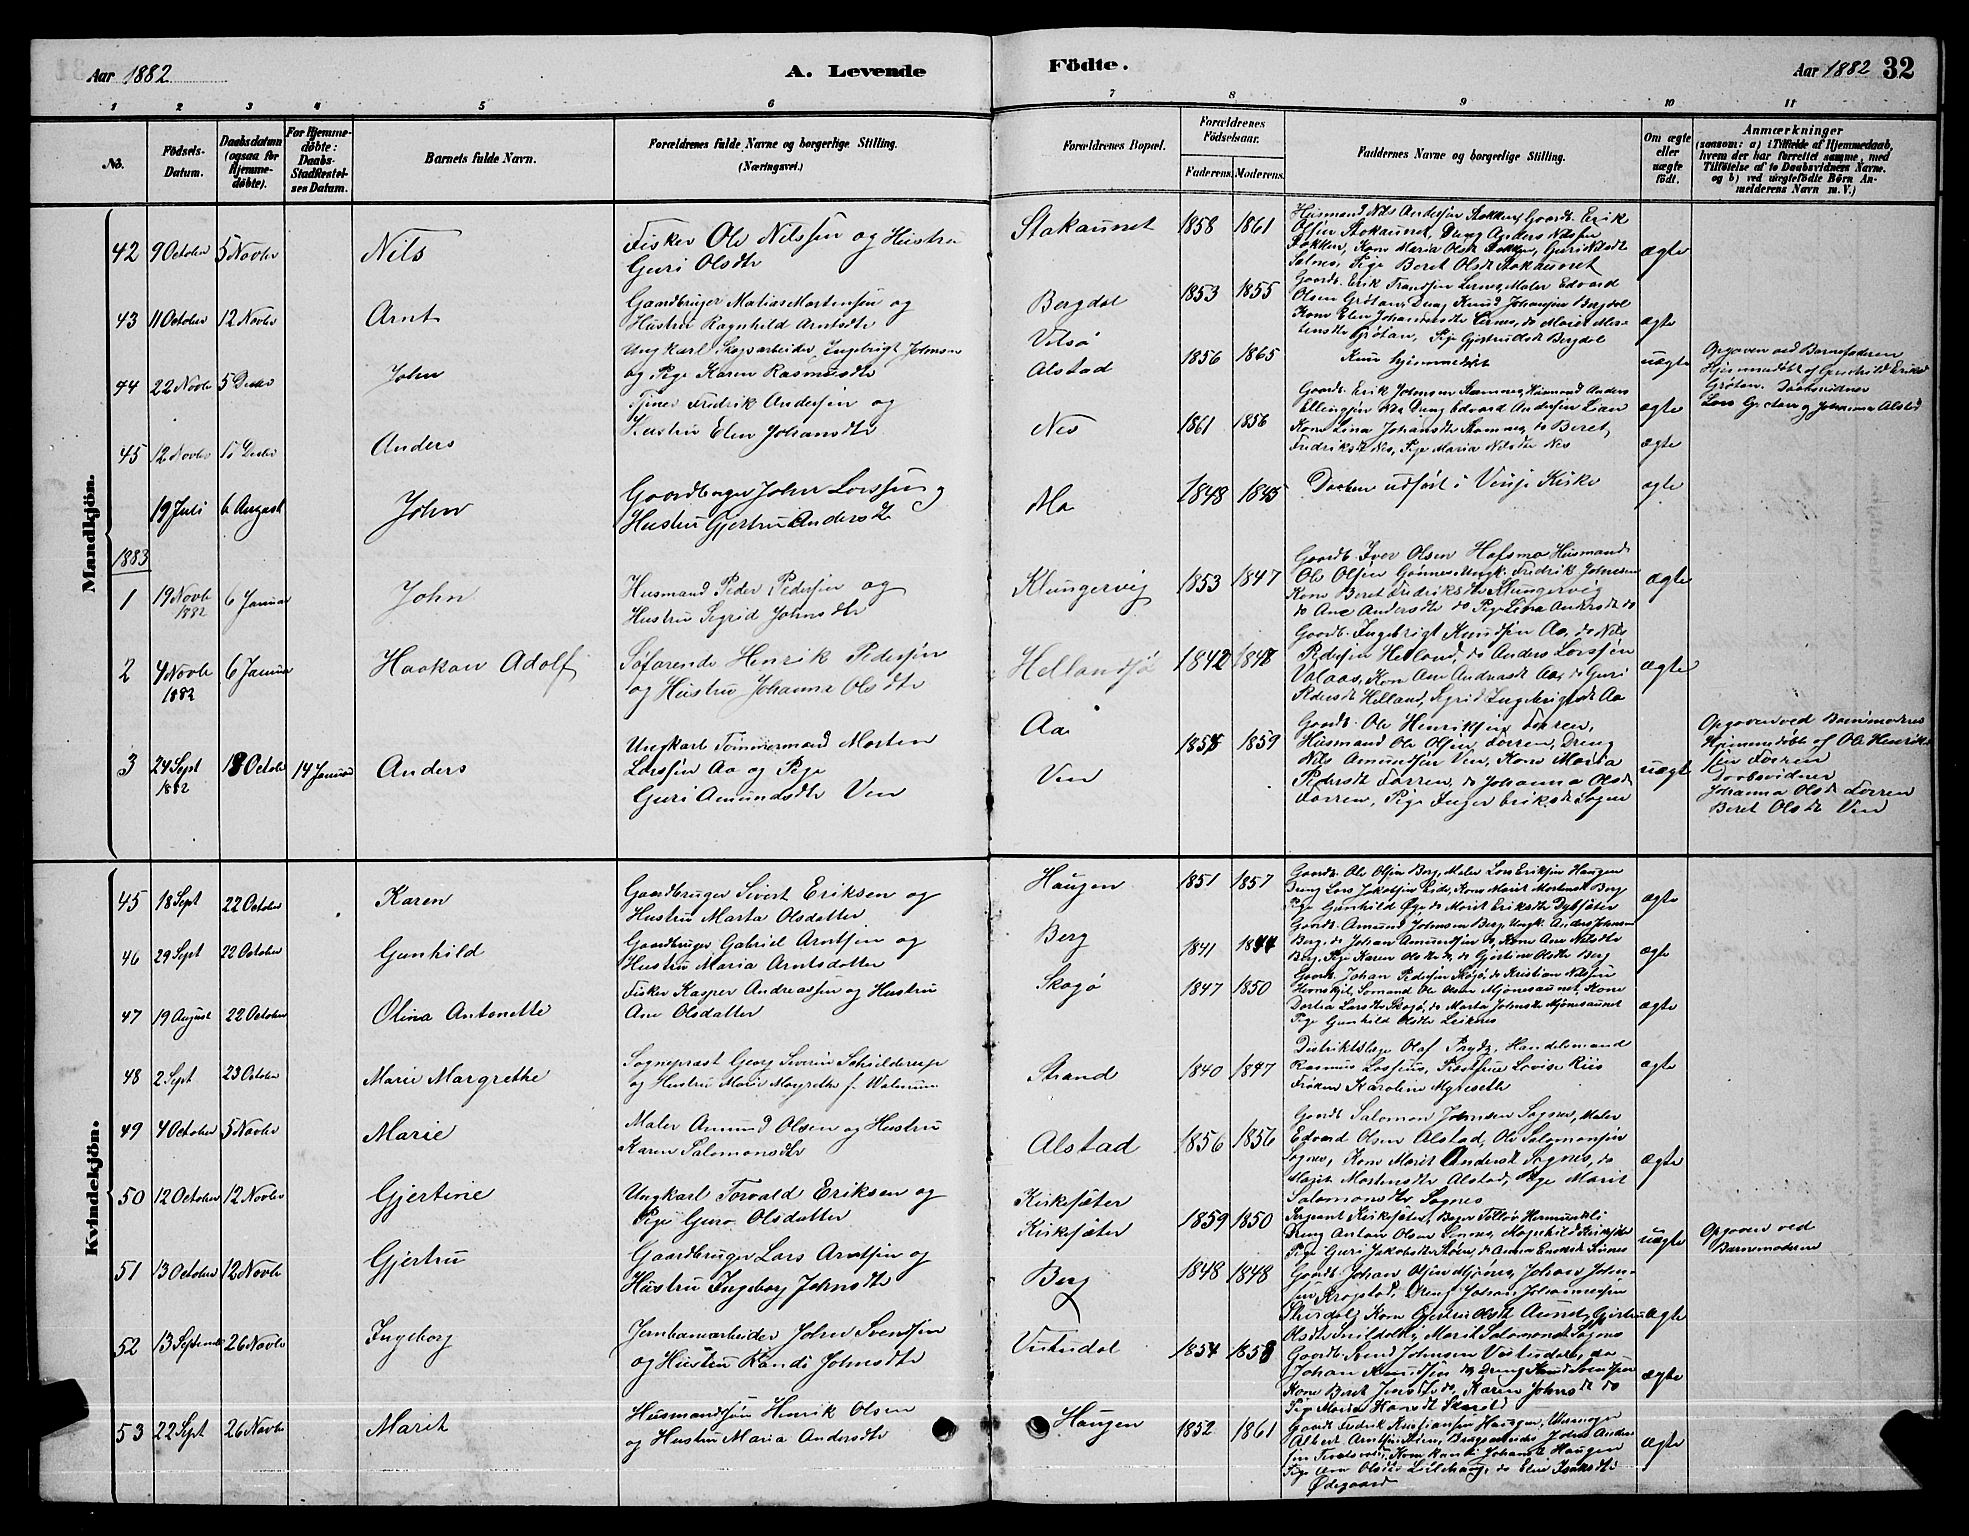 Aar 1882
A. Levende
Födte.
Aar 1882 32
1 2 3 4 5 6 7 8 9 10 11
No.
Födsels-Datum.
Daabsdatum (ogsaa for Hjemme-døbte).
For Hjemme-døbte: Daabs-Stadfæstel-ses Datum.
Barnets fulde Navn.
Forældrenes fulde Navne og borgerlige Stilling.
(Næringsvei.)
Forældrenes Bopæl.
Forældrenes Födselsaar.
Faderens. Moderens.
Faddernes Navne og borgerlige Stilling.
Om ægte eller uægte født.
Anmærkninger
(saasom: a) i Tilfælde af Hjemmedaab,
hvem der har forrettet samme, med
Tilføielse af to Daabsvidners Navne.
og b) ved uægtefödte Börn An-
melderens Navn m. V.)
Mandkjön.
42 9 October 5 Novbr Nils
Fisker Ole Nilssen og Hustru
Guri Olsdtr
Stokaunet 1858 1861
Husmand Nils Andersen Stokken, Gaardb. Erik
Olsen Stokaunet, Dreng Anders Nilsen
Stokken, Kone Maria Olsdt Stokken, Guri Nilsdtr
Salnes, Pige Beret Olsdt Stokaunet
ægte
43 11 October 12 Novbr Arnt
Gaardbruger Matias Mortensen og
Hustru Ragnhild Arntsdtr
Bergdal 1853 1855
Gaardb. Erik Lernes, Maler Edvard
Olsen Grötan, Dreng Knud Johansen Bergdal
Kone Elen Johansdtr Lernes, do Marit
Grötan, Pige Gjertrud Bergdal
ægte
44 22 Novbr 5 Decbr John
Ungkarl, Skovarbeider, Ingebrigt Johnsen
og Pige Karen Rasmusdtr
Vitsö
Alstad 1856 1865
Kun hjemmedöbt
uægte
Opgaven ved Barnefaderen
Hjemmedöbt af Gunhild
Grötan. Daabsvidner
Lars Grötan og Johanna Alstad
45 12 Novbr Decbr Anders
Tjener Fredrik Andersen og
Hustru Elen Johansdtr
Nes 1861 1856
Gaardb. Erik Johnsen Stamnes, Husmand Anders
Ellingsen Dreng Edvard Andersen Lian
Kone Lina Johansdtr Stamnes, do Beret
Fredriksdt Nes, Pige Maria Nilsdtr Nes
ægte
ægte
19 Juli 6 August John
Gaardbruger John Larssen og
Hustru Gjertru Andersdtr
Mo 1848 1845
Daaben udført i Vinje Kirke
ægte
1883
1 19 Novb 1882 6 Januar John
Husmand Peder Pedersen og
Hustru Sigrid Johnsdtr
Klungervig 1853 1847
Gaardb. Iver Olsen Hafsmo Husmand
Ole Olsen Gönnes, Ungk. Fredrik Johnsen
Kone Beret Fredriksdtr Klungervig
do Ane Andersdtr do Pige Lina Andersdt do
ægte
2 4 Novbr 1882 6 Januar Haakan Adolf
Söfarende Henrik Pedersen
og Hustru Johanna Olsdtr
Hellandsjö 1842 1848
Gaardb. Ingebrigt Knudsen Aa, do Nils
Pedersen Helland, do Anders Larssen
Valaas, Kone Ane Andreasdt Aa, do Guri
Pedersdt Helland, Sigrid Ingebrigtsdt Aa
ægte
3 24 Sept 1882 18 October 14 Januar Anders
Ungkarl Tömmermand Morten
Larssen Aa og Pige
Guri Amundsdtr Ven
Aa
Ven 1858 1859
Gaardb. Ole Henriksen Forren,
Husmand Ole Olsen Forren, Dreng
Nils Amundsen Ven, Kone Maria
Pedersdt Forren, do Johanna Olsdt
Forren, Pige Inger Eriksdt Sogne
uægte
Opgaven ved Barnemoderen
Hjemmedöbt af Ole Henrik-
sen Forren
Daabsvidner
Johanna Olsdt Forren
Beret Olsdtr Ven
Kvindekjön.
45 18 Sept 22 October Karen
Gaardbruger Sivert Eriksen og
Hustru Marta Olsdatter
Haugen 1851 1857
Gaardb. Ole Olsen Berg, Maler Lars Eriksen Haugen
Dreng Lars Jakobsen Eide, Kone Marit Mortensdt Berg
Pige Gunhild Öye, do Marit Eriksdtr
ægte
46 29 Sept 22 October Gunhild
Gaardbruger Gabriel Arntsen og
Hustru Maria Arntsdatter
Berg 1841 1844
Gaardb. Amund Johnsen Berg, Ungk. Anders Johnsen
Berg, do Johan Amundsen do, Kone Ane Nilsdtr
Berg, Pige Karen Olsdtr do, do Gjertine Olsdtr Berg
ægte
47 19 August 22 October Olina Antonette
Fisker Kasper Andreassen og Hustru
Ane Olsdatter
Skogö 1847 1850
Gaardb. Johan Pedersen Skogö, do Kristian Nilsen
Sömand Ole Olsen Mjönesaunet, Kone
Dortea Larsdtr Skogö, do Marta Johnsdtr Mjönesaunet
Pige Gunhild Olsdtr Leiknes
ægte
48 2 Sept 23 October Marie Margrethe
Sogneprest Georg Severin Schilderup
og Hustru Marie Margrethe f.
Strand 1840 1847
Distriktslæge Olaf Prydz, Handelsmand
Rasmus Lossius, Lovise Riis
Fröken Karoline
ægte
49 4 October 5 Novbr Marie
Maler Amund Olsen og Hustru
Karen Salomonsdtr
Alstad 1856 1856
Gaardb. Salomon Johnsen Sognes, Maler
Edvard Olsen Alstad, Ole Salomonsen
Sognes, Kone Marit Andersdt Sognes, do
Marit Mortensdtr Alstad, Pige Marit
Salomonsdtr Sognes
ægte
50 12 October 12 Novbr Gjertine
Ungkarl Torvald Eriksen og
Pige Guro Olsdatter
Kirkesæter
Kirkesæter 1859 1850
Sergeant Kirkesæter, Bager
Dreng Anton Olsen
Pige Guri Jakobsdtr Stöen, do Anna Eriksdt
uægte
Opgaven ved
Barnemoderen
51 13 October 12 Novbr Gjertru
Gaardbruger Lars Arntsen og
Hustru Ingeborg Johnsdtr
Berg 1848 1848
Gaardb. Johan Olsen Mjönes, Johan John-
sen Krogstad, Dreng Johan Johannessen
Kone Gjertru Olsdt Aune, Gjertru
Olsdtr Snildal, Marit Salomonsdt Sognes
ægte
52 13 Septembr 26 Novbr Ingeborg
Jernbanearbeider John Svendsen
og Hustru Randi Johnsdtr
Vutudal 1854 1858
Gaardb. Svend Johnsen Vutudal, do
Johan Knudsen do, Dreng Knud Svendsen
Kone Beret Jensdtr do, Karen Johnsdt do
Pige Maria Hansdt
ægte
53 22 Sept 26 Novbr Marit
Husmandsön Henrik Olsen
og Hustru Maria Andersdtr
Haugen 1852 1861
Gaardb. Fredrik Kristiansen Haugen,
Albert Arntsen John Ander-
sen Kone Johansdt Haugen
Pige Ane Olsdtr do Eline Isaksdtr
Ödegaard
ægte